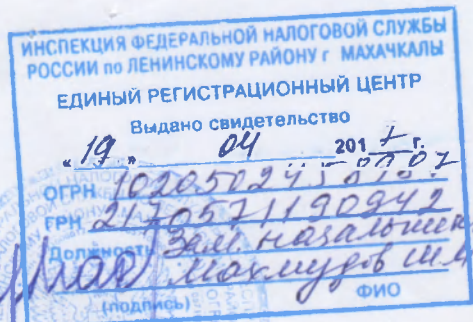 ИНСПЕКЦИЯ ФЕДЕРАЛЬНОЙ НАЛОГОВОЙ СЛУЖБЫ
РОССИИ по ЛЕНИНСКОМУ РАЙОНУ г МАХАЧКАЛЫ
ЕДИНЫЙ РЕГИСТРАЦИОННЫЙ ЦЕНТР
Выдано свидетельство
« 19 » 04 2017 г.
ОГРН
ГРН 2170571190942
Должность Зам. начальника
Махмудов Ш.М
(подпись) ФИО